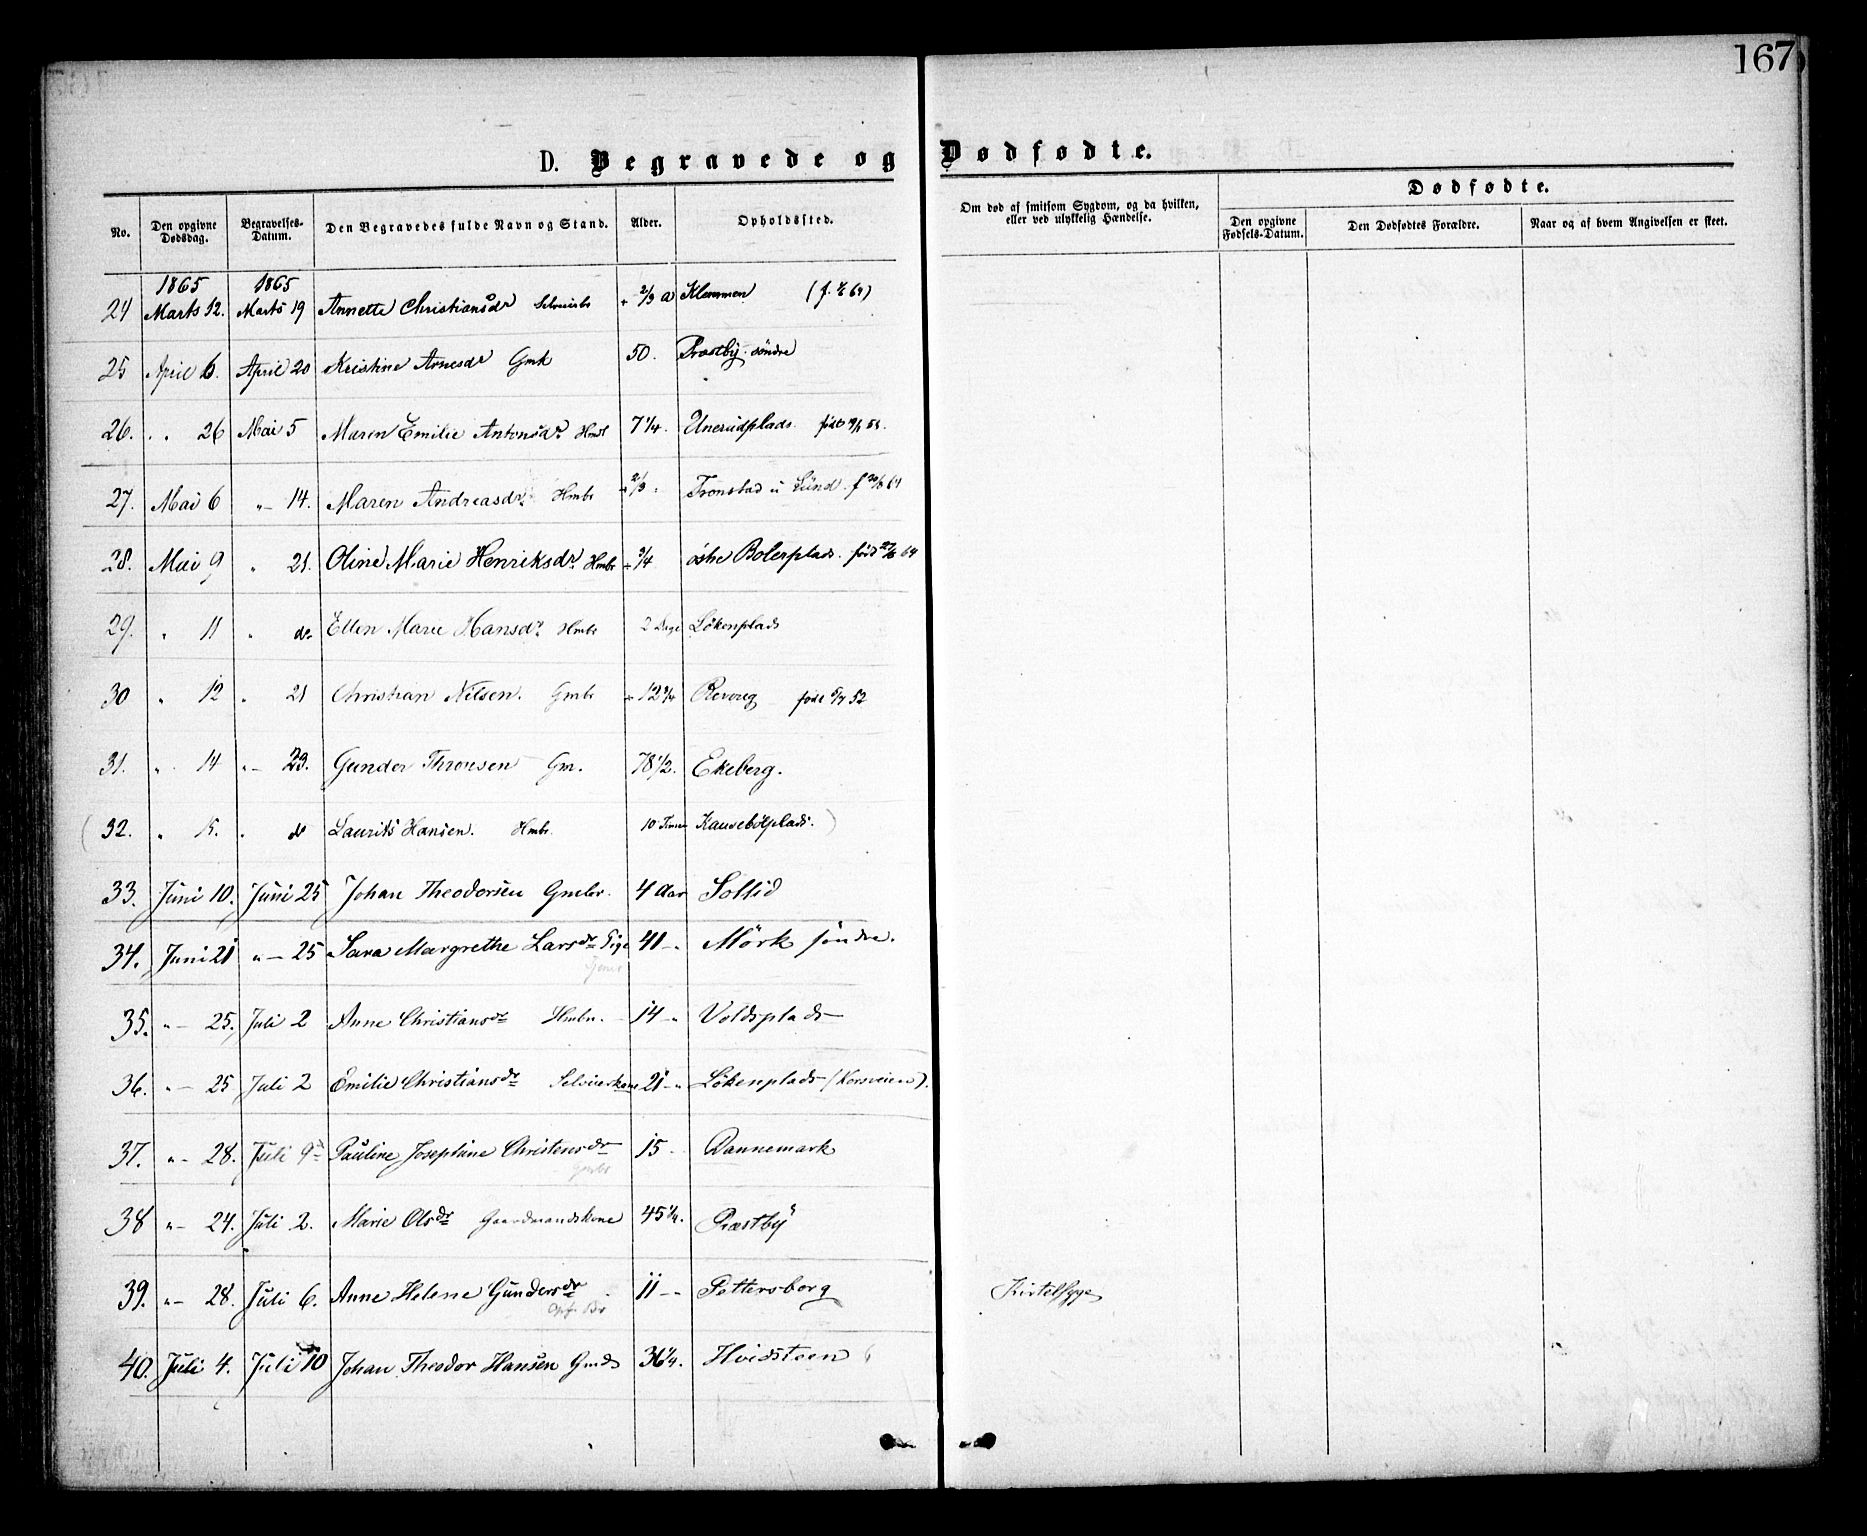 167
D. Begravede og Dødfødte.
No. Den opgivne Dødsdag. Begravelses-Datum. Den Begravedes fulde Navn og Stand. Alder. Opholdssted. Om død af smitsom Sygdom, og da hvilken, eller ved ulykkelig Hændelse. Dødfødte.
Den opgivne Fødsels-Datum. Den Dødfødtes Forældre. Naar og af hvem Angivelsen er skeet.
1865 1865
24 Marts 12. Marts 19 Annette Christiansdr 2/3 a Klemmen
25 April 6. April 20 Kristine Arnesdr Gmk 50. Præstby søndre
26. " " 26 Mai 5 Maren Emilie Antonsdr. 7 1/4. Unerudplads.
27. Mai 6 " — 14. Maren Andreasdr. Hmbr ÷ 2/3 Tronstad
28. Mai 9 " 21. Oline Marie Henriksdr. Hmbr ÷ 3/4 østre Bolerplads.
29. " 11 " do Ellen Marie Hansdr. Hmbr 2 Dage Lökenplads
30 " 12 " 21 Christian Nilsen. Gmbr ÷ 12 3/4 født 5/7 52
31. " 14 " — 23. Gunder Thronsen Gm. 78 1/2. Ekeberg.
(32. " 15. " do Laurits Hansen. Hmbr. 10 Timer)
33. Juni 10. Juni 25 Johan Theodorsen Gmbr. 4 Aar Sollid
34. Juni 21 " — 25 Sara Margrethe Larsdr Pige 41 — " Mörk söndre.
35. " — 25. Juli 2 Anne Christiansdr Hmbn. 14 — " Voldsplads
36. " — 25. Juli 2 Emilie Christiansdr Selveierkone 21 — " Lökenplads (Korsveien).
37. " — 28. Juli 9 Pauline Josephine Christensdr 15 - Dannemark
Gmbr
38 " — 24. Juli 2. Marie Olsdr Gaardmandskone 45 1/4. Præstby
39. " — 28. Juli 6. Anne Helene Gundersdr 11 — " Pettersborg Kirtelsyge
40. Juli 4. Juli 10 Johan Theodor Hansen 36 1/4. Hvidsteen